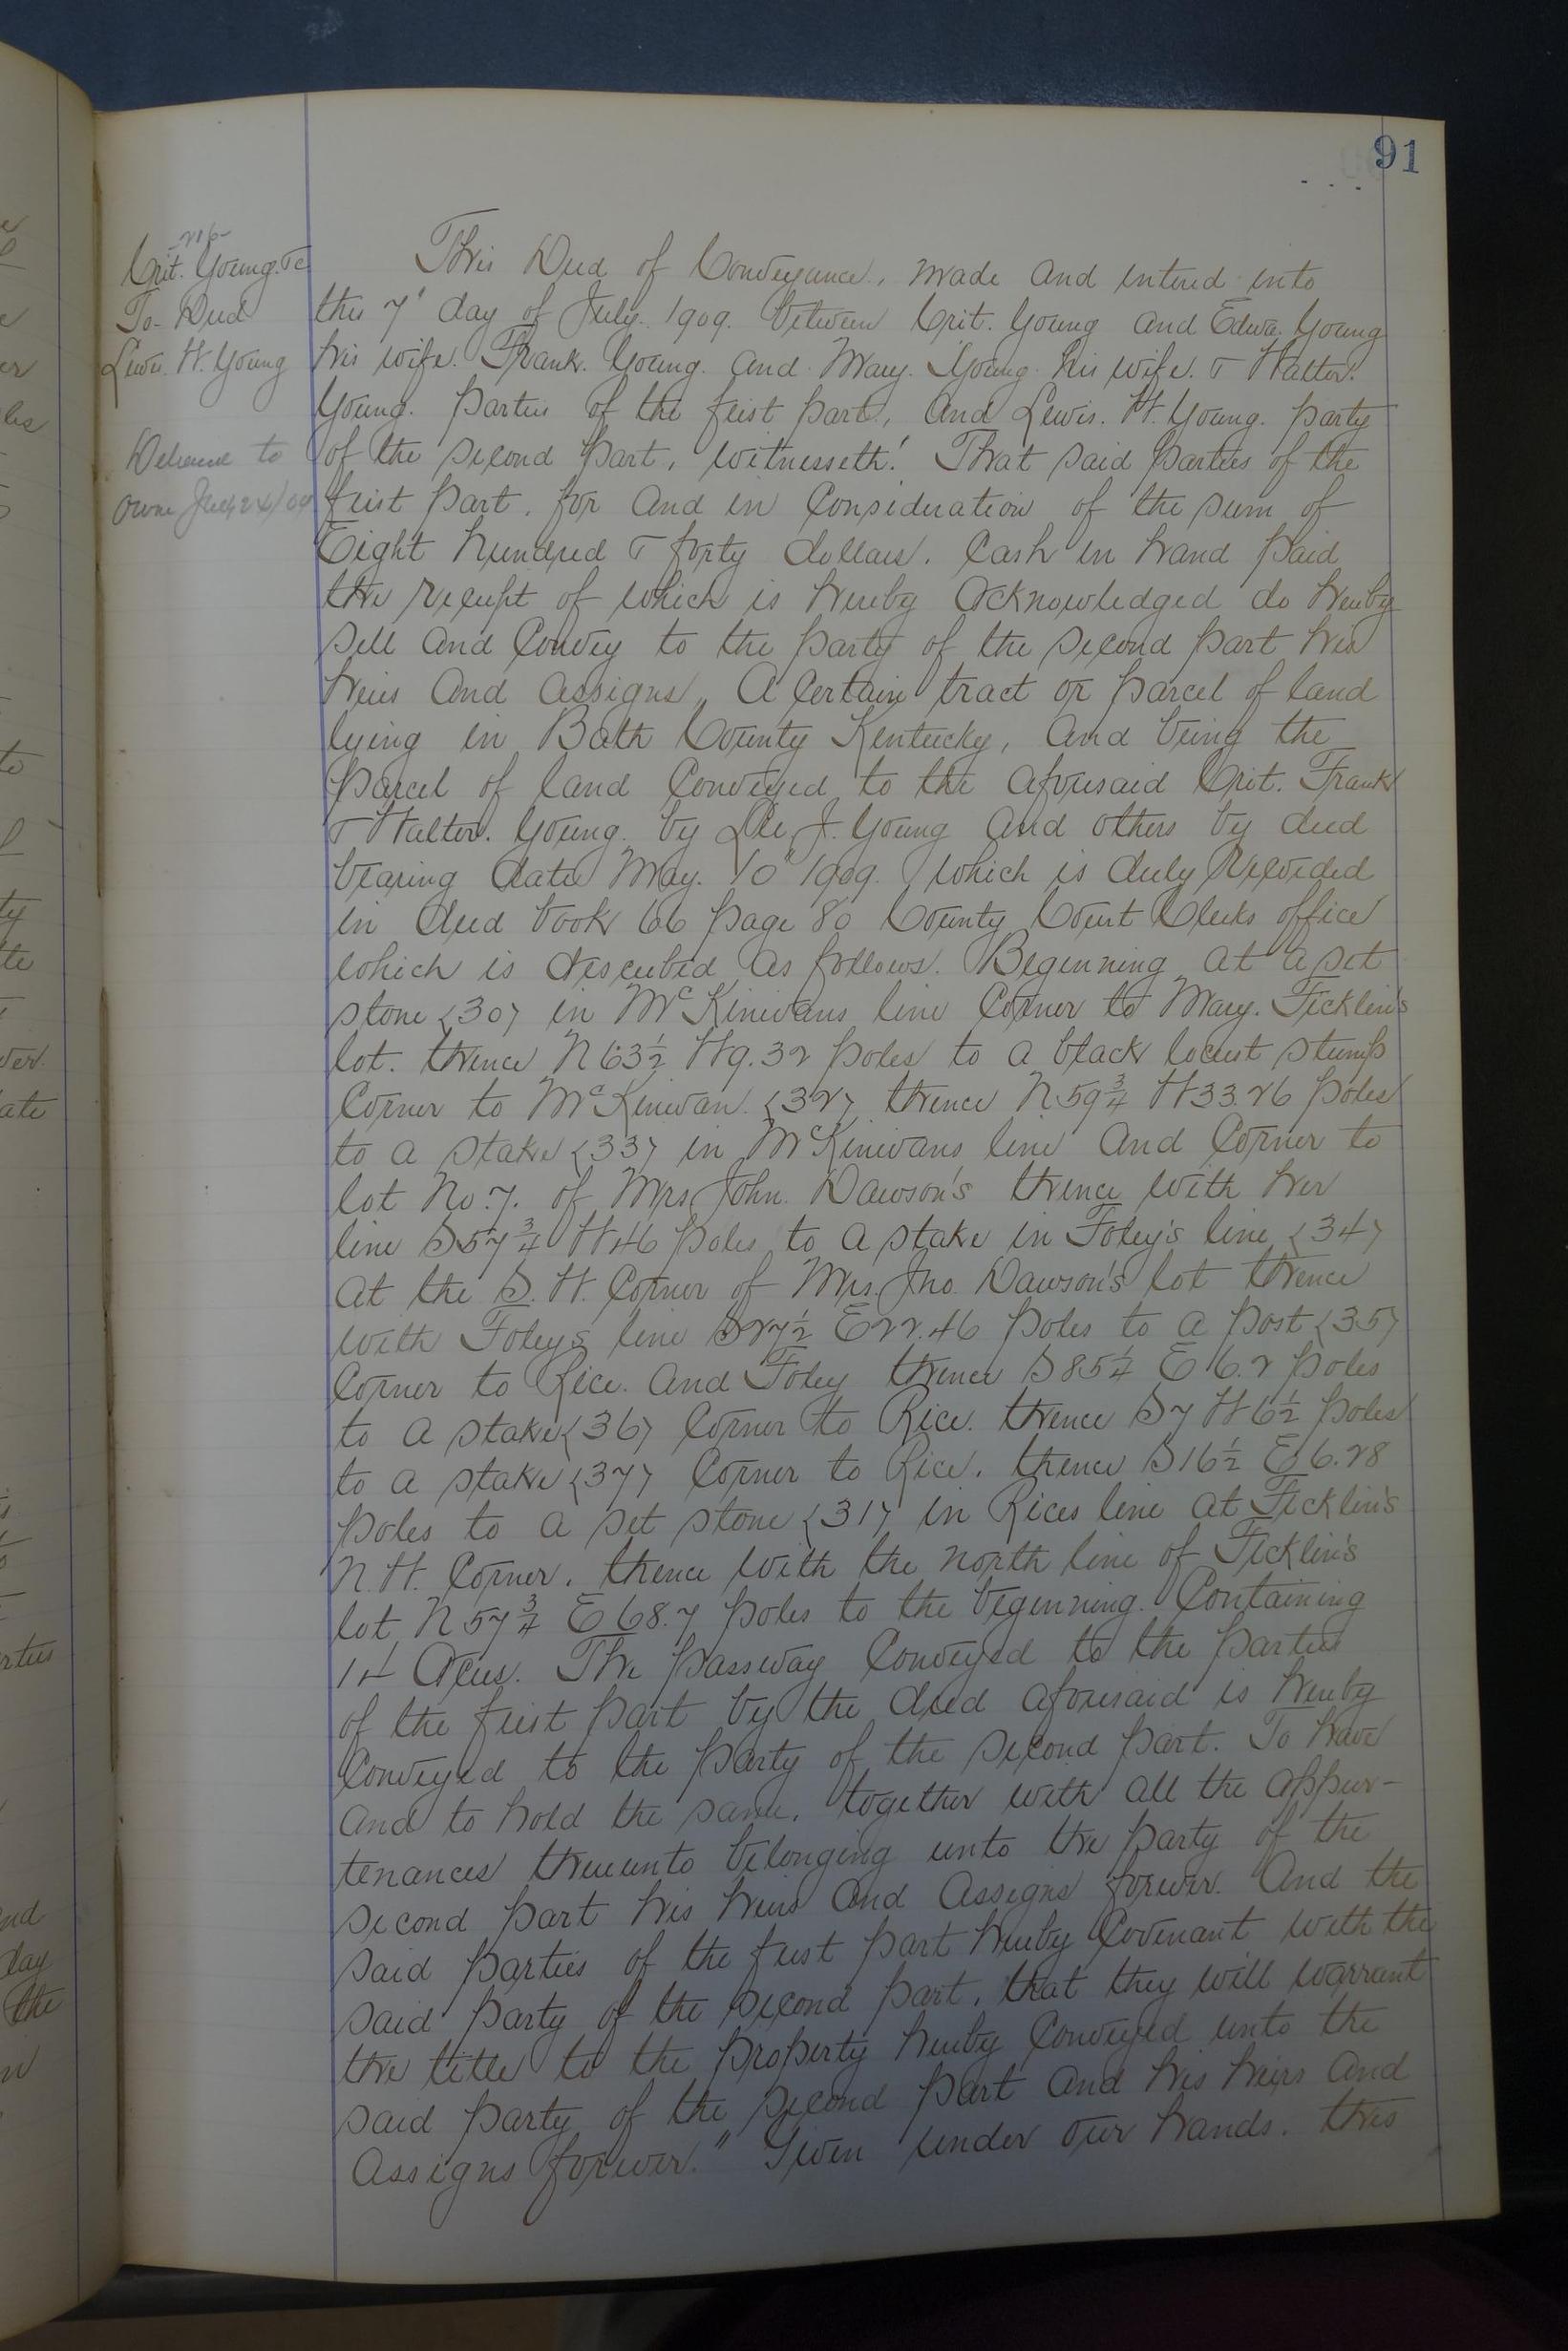 91
Crit. Young. &c
To Deed
Lewis. H. Young
Delivered to
owner July 24/09
This Deed of Conveyance, made and entered into
this 7" day of July. 1909. between Crit. Young and Edwa. Young
his wife. Frank. Young. and Mary. Young his wife. & Walter.
Young. parties of the first part, and Lewis. H. Young. party
of the second part, witnesseth: That said parties of the
first part, for and in consideration of the sum of
Eight hundred & forty dollars. Cash in hand paid
the receipt of which is hereby acknowledged do hereby
sell and convey to the party of the second part his
heirs and assigns, A certain tract or parcel of land
lying in Bath County Kentucky, and being the
parcel of land conveyed to the aforesaid Crit. Frank
& Walter. Young. by J. Young and others by deed
bearing date May. 10" 1909. which is duly recorded
in deed book 66 page 80 County Court Clerks office
which is described as follows. Beginning at a set
stone <30> in McKinivans line corner to Mary. Ficklin's
lot. thence N 63½ W 9.32 poles to a black locust stump
Corner to McKinivan. <32> thence N. 59¾ W 33.26 poles
to a stake <33> in McKinivans line and corner to
lot No. 7. of Mrs John. Dawson's thence with her
line S 57¾ W 46 poles to a stake in Foley's line <34>
at the S. W. Corner of Mrs. Jno. Dawson's lot thence
with Foleys line S 27½ E 22.46 poles to a post <35>
Corner to Rice. and Foley thence S 85¼ E 6.2 poles
to a stake <36> corner to Rice. thence S 7 W 6½ poles
to a stake <37> corner to Rice. thence S 16½ E 6.28
poles to a set stone <31> in Rices line at Ficklin's
N. W. Corner. thence with the north line of Ficklin's
lot N 57¾ E 68.7 poles to the beginning. Containing
14 Acres. The passway conveyed to the parties
of the first part by the deed aforesaid is hereby
conveyed to the party of the second part. To have
and to hold the same, together with all the appur-
tenances thereunto belonging unto the party of the
second part his heirs and assigns forever. And the
said parties of the first part hereby covenant with the
said party of the second part, that they will warrant
the title to the property hereby conveyed unto the
said party of the second part and his heirs and
assigns forever." Given under our hands. this